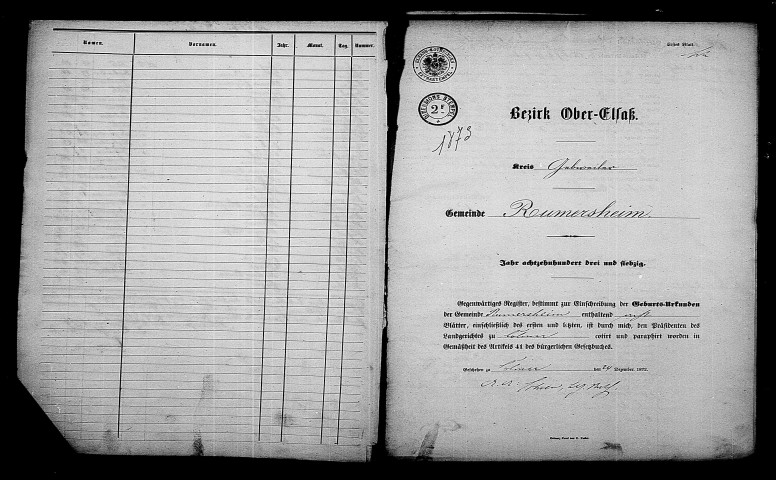 Namen. Vornamen. Jahr. Monat. Tag. Nummer.
Erstes Blatt.
2 F
1873
Bezirk Ober-Elsaß.
Kreis Gebweiler
Gemeinde Rumersheim.
Jahr achtzehnhundert drei und siebzig.
Gegenwärtiges Register, bestimmt zur Einschreibung der Geburts-Urkunden
der Gemeinde Rumersheim enthaltend
Blätter, einschließlich des ersten und letzten, ist durch mich, den Präsidenten des
Landgerichts zu Colmar cotirt und paraphirt worden in
Gemäßheit des Artikels 41 des bürgerlichen Gesetzbuches.
Geschehen zu Colmar den 24 Dezember 1872.